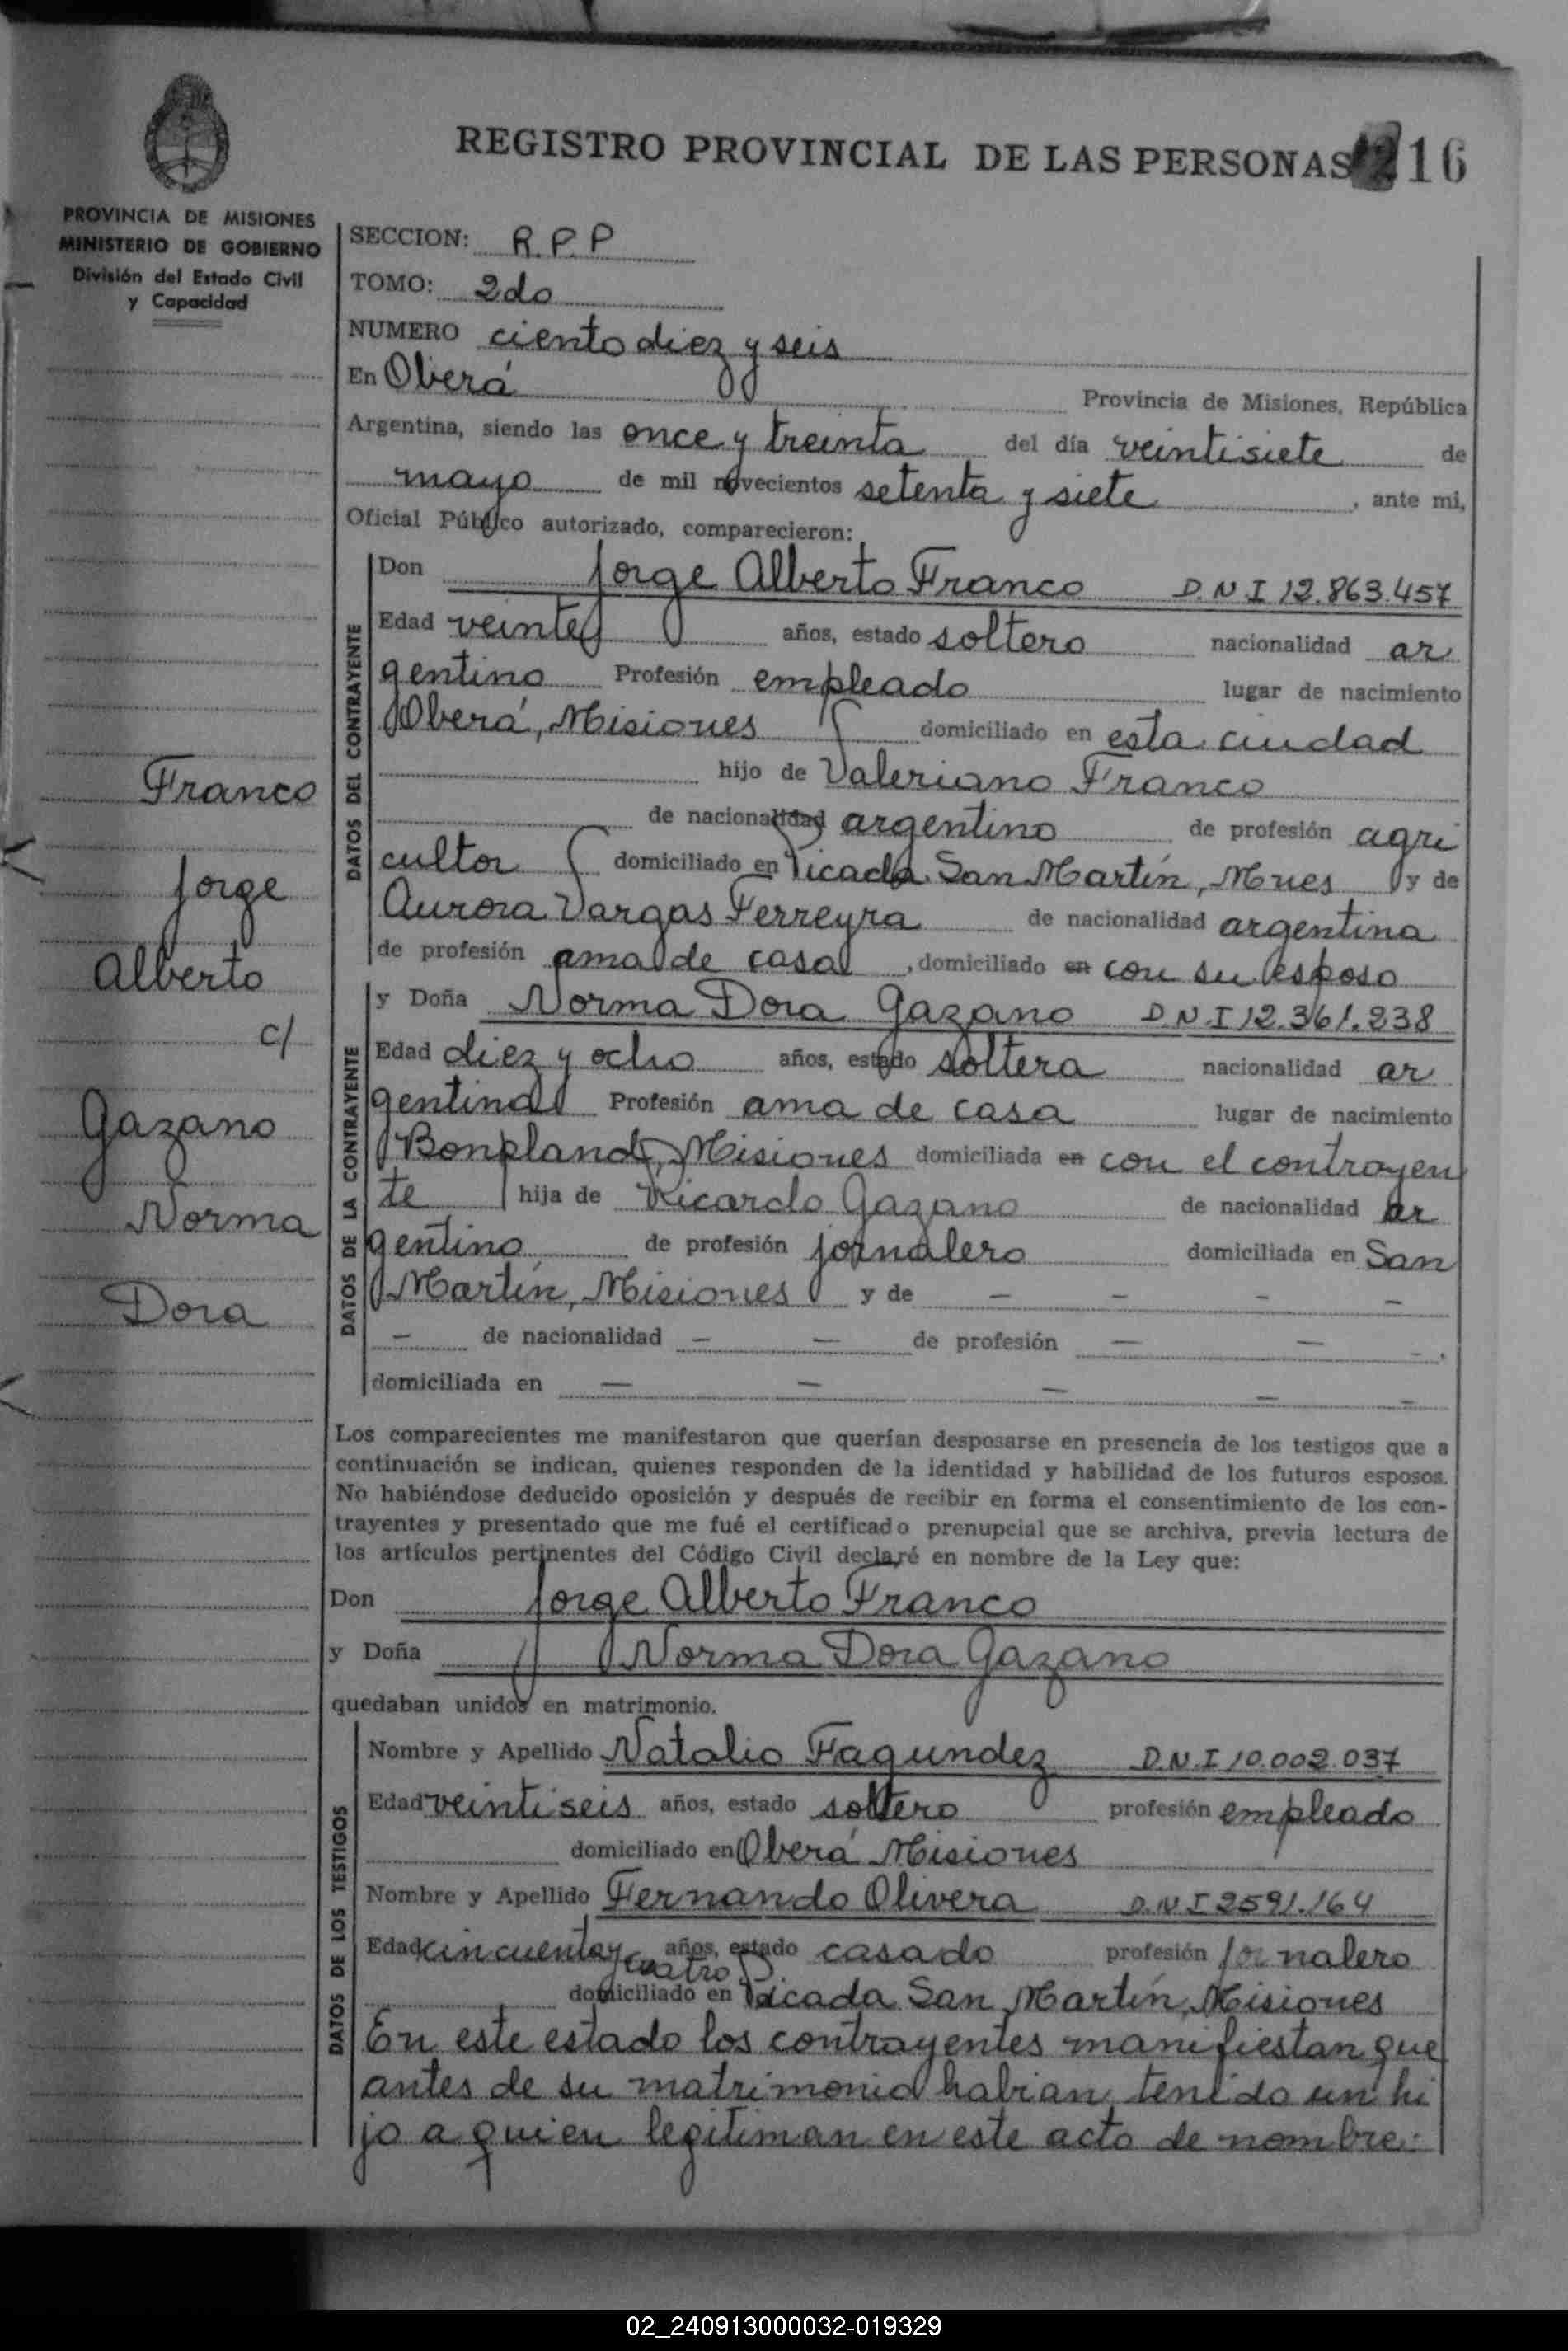 REGISTRO PROVINCIAL DE LAS PERSONAS 216
PROVINCIA DE MISIONES
MINISTERIO DE GOBIERNO
División del Estado Civil
y Capacidad
SECCION: R.P.P
TOMO: 2do
NUMERO ciento diez y seis
En Oberá Provincia de Misiones, República
Argentina, siendo las once y treinta del día veintisiete de
mayo de mil novecientos setenta y siete, ante mi,
Oficial Público autorizado, comparecieron:
DATOS DEL CONTRAYENTE
Don Jorge Alberto Franco D.N.I 12.863.457
Edad veinte años, estado soltero nacionalidad ar
gentino Profesión empleado lugar de nacimiento
Oberá, Misiones domiciliado en esta ciudad
hijo de Valeriano Franco
de nacionalidad argentino de profesión agri
cultor domiciliado en Picada San Martín, Mnes y de
Aurora Vargas Ferreyra de nacionalidad argentina
de profesión ama de casa, domiciliado en con su esposo
DATOS DE LA CONTRAYENTE
y Doña Norma Dora Gazano D.N.I 12.361.238
Edad diez y ocho años, estado soltera nacionalidad ar
gentina Profesión ama de casa lugar de nacimiento
Bonpland, Misiones domiciliada en con el contrayen
te hija de Ricardo Gazano de nacionalidad ar
gentino de profesión jornalero domiciliada en San
Martín, Misiones y de - - - -
- de nacionalidad - - de profesión - - -.
domiciliada en - - - - -
Los comparecientes me manifestaron que querían desposarse en presencia de los testigos que a
continuación se indican, quienes responden de la identidad y habilidad de los futuros esposos.
No habiéndose deducido oposición y después de recibir en forma el consentimiento de los con-
trayentes y presentado que me fué el certificado prenupcial que se archiva, previa lectura de
los artículos pertinentes del Código Civil declaré en nombre de la Ley que:
Don Jorge Alberto Franco
y Doña Norma Dora Gazano
quedaban unidos en matrimonio.
DATOS DE LOS TESTIGOS
Nombre y Apellido Natalio Fagundez D.N.I 10.002.037
Edad veintiseis años, estado soltero profesión empleado
domiciliado en Oberá Misiones
Nombre y Apellido Fernando Olivera D.N.I 2591.164
Edad cincuenta y cuatro años, estado casado profesión jornalero
domiciliado en Picada San Martín, Misiones
En este estado los contrayentes manifiestan que
antes de su matrimonio habian tenido un hi
jo a quien legitiman en este acto de nombre:
Franco
Jorge
Alberto
c/
Gazano
Norma
Dora
02_240913000032-019329